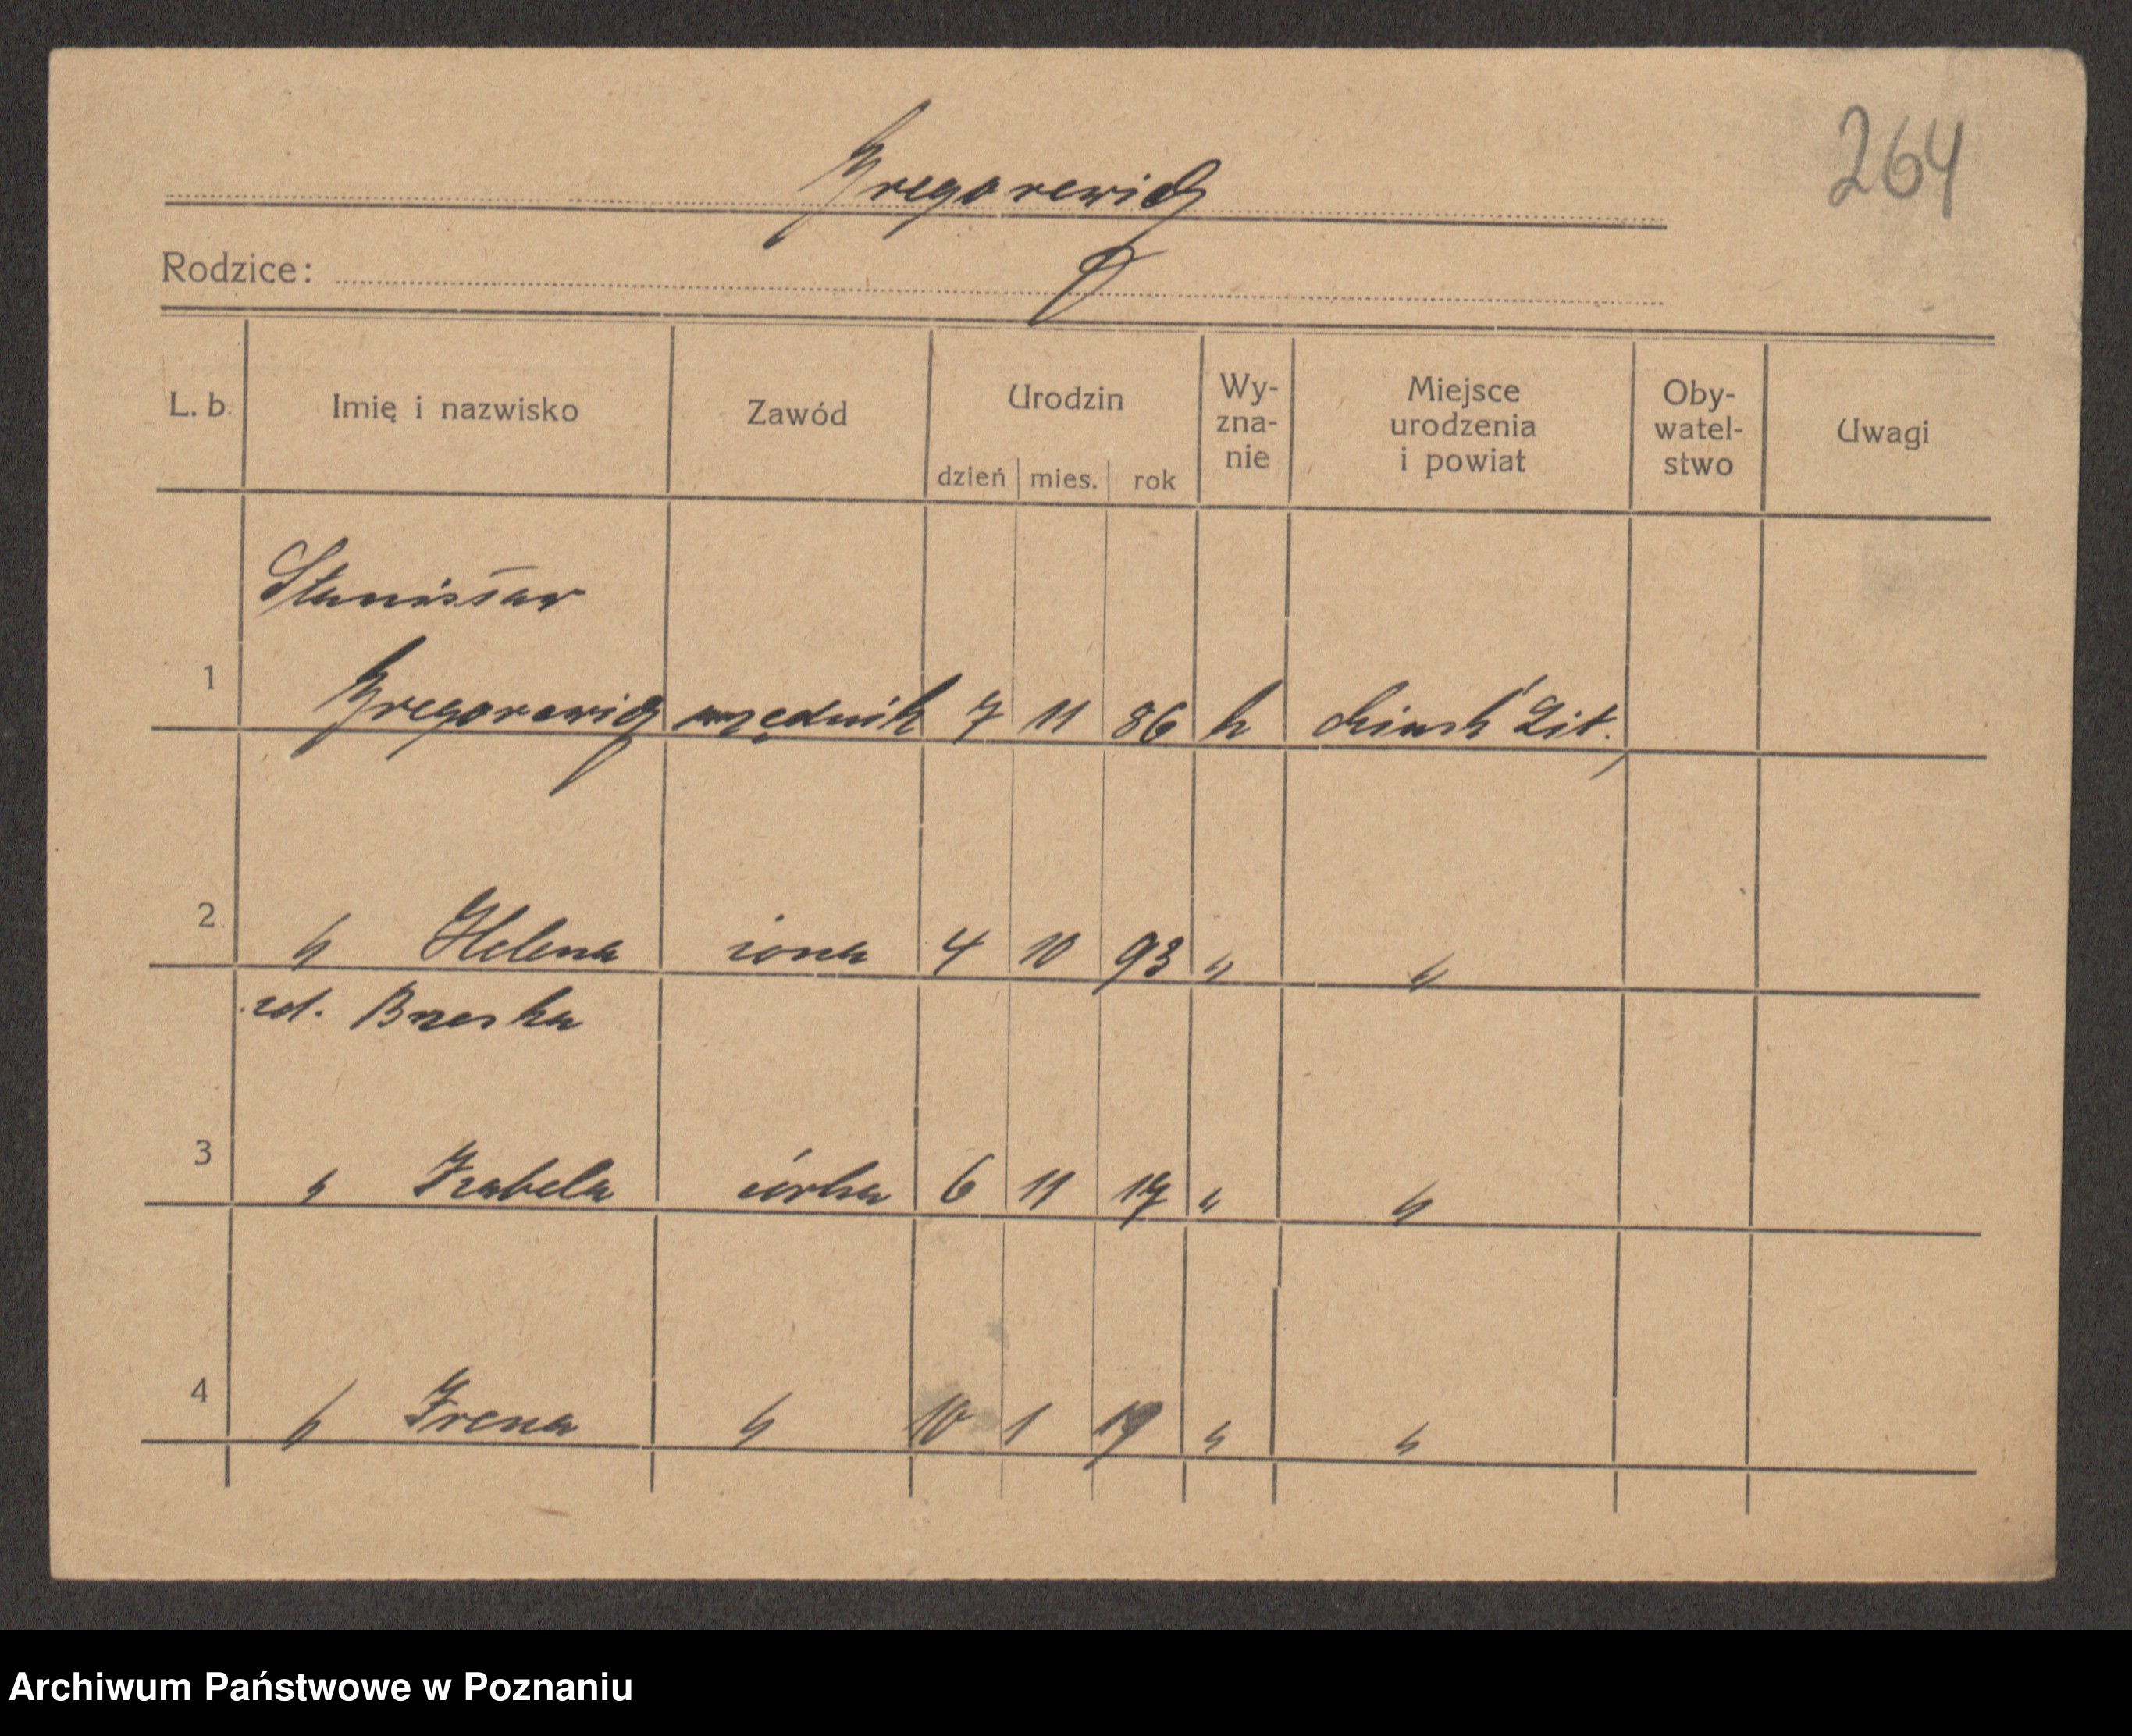 264
Gregorewicz
Rodzice:
L. b. Imię i nazwisko Zawód Urodzin dzień mies. rok Wy-zna-nie Miejsce urodzenia i powiat Oby-watel-stwo Uwagi
Stanisław
1 Gregorewicz urzędnik 7 11 86 k Lit.
2 " Helena żona 4 10 93 " "
zd. Brzeska
3 " Izabela córka 6 11 17 " "
4 " Irena " 10 1 19 " "
Archiwum Państwowe w Poznaniu